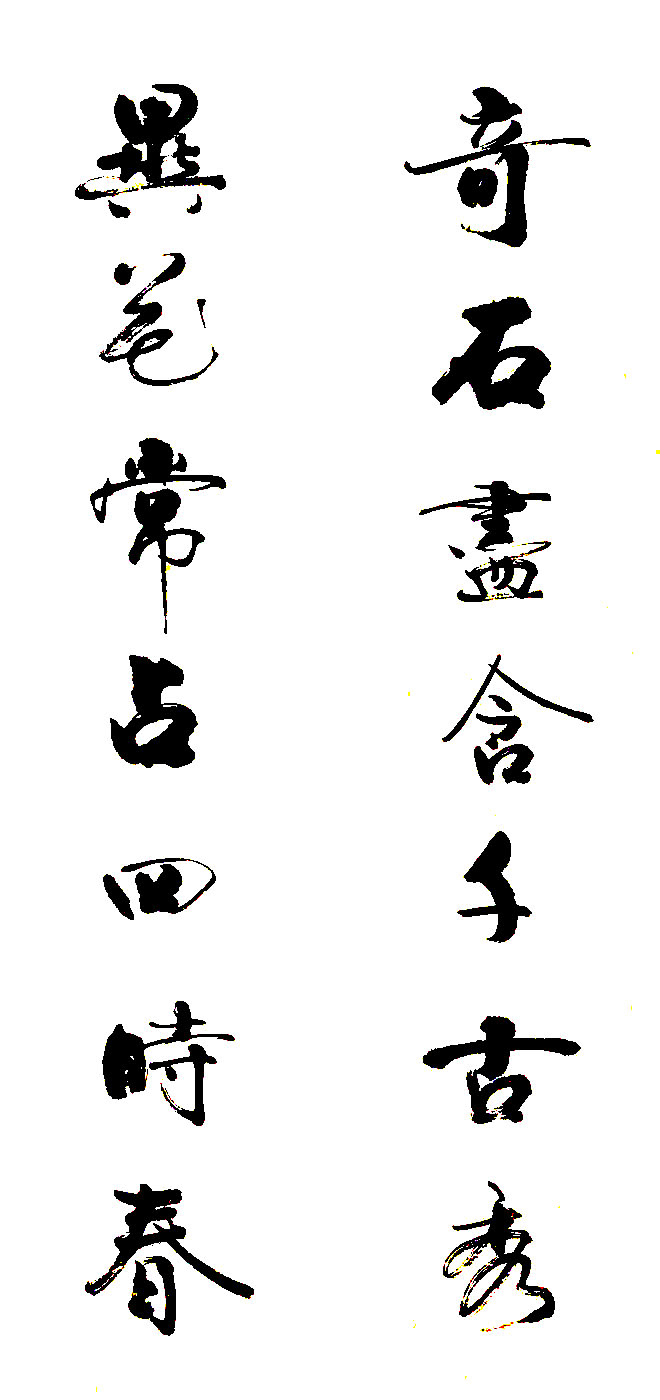 奇石盡含千古秀
異花常占四時春